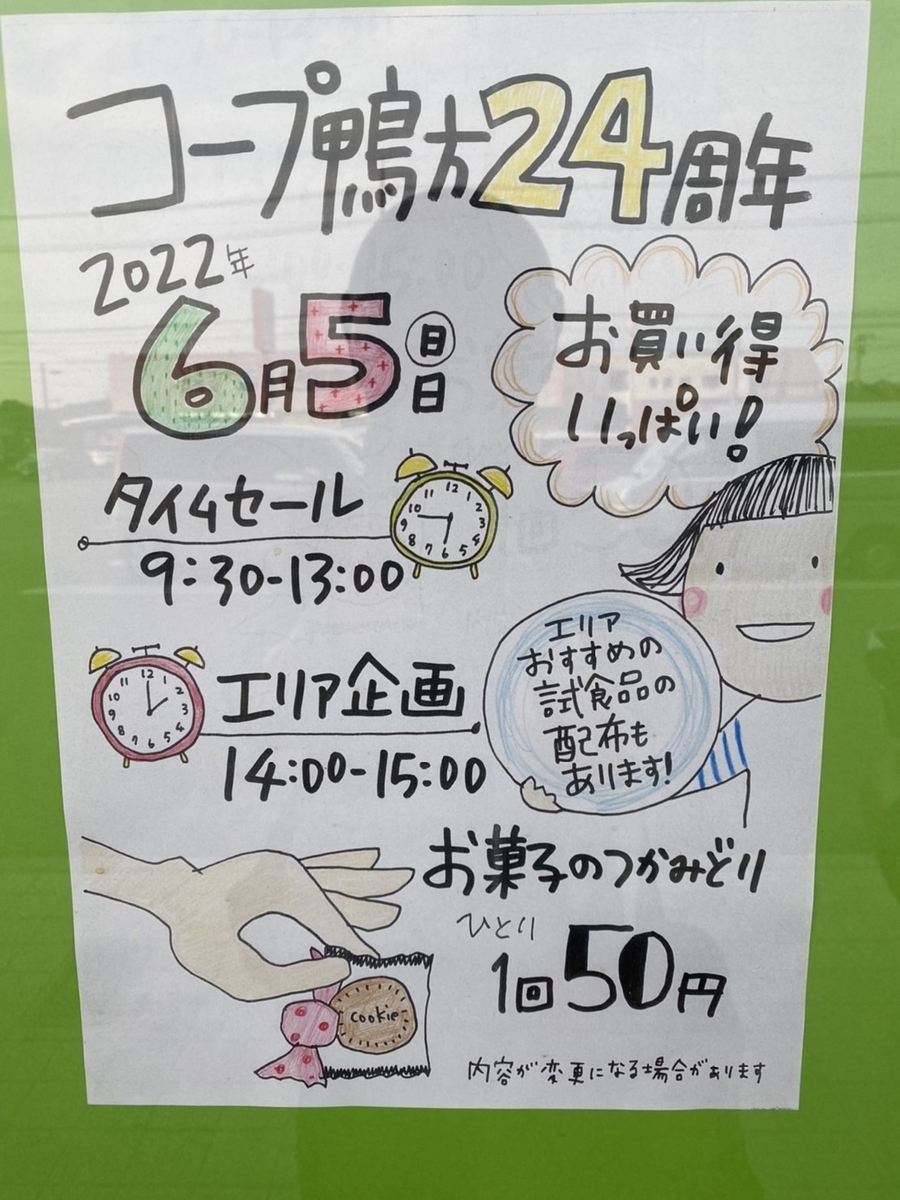 コープ鴨方24周年
2022年
6月5日
日
お買い得
いっぱい!
タイムセール
9:30-13:00
エリア企画
14:00-15:00
エリア
おすすめの
試食品の
配布も
あります!
お菓子のつかみどり
ひとり
1回50円
cookie
内容が変更になる場合があります
12
1
2
3
4
5
6
7
8
9
10
11
12
1
2
3
4
5
6
7
8
9
10
11